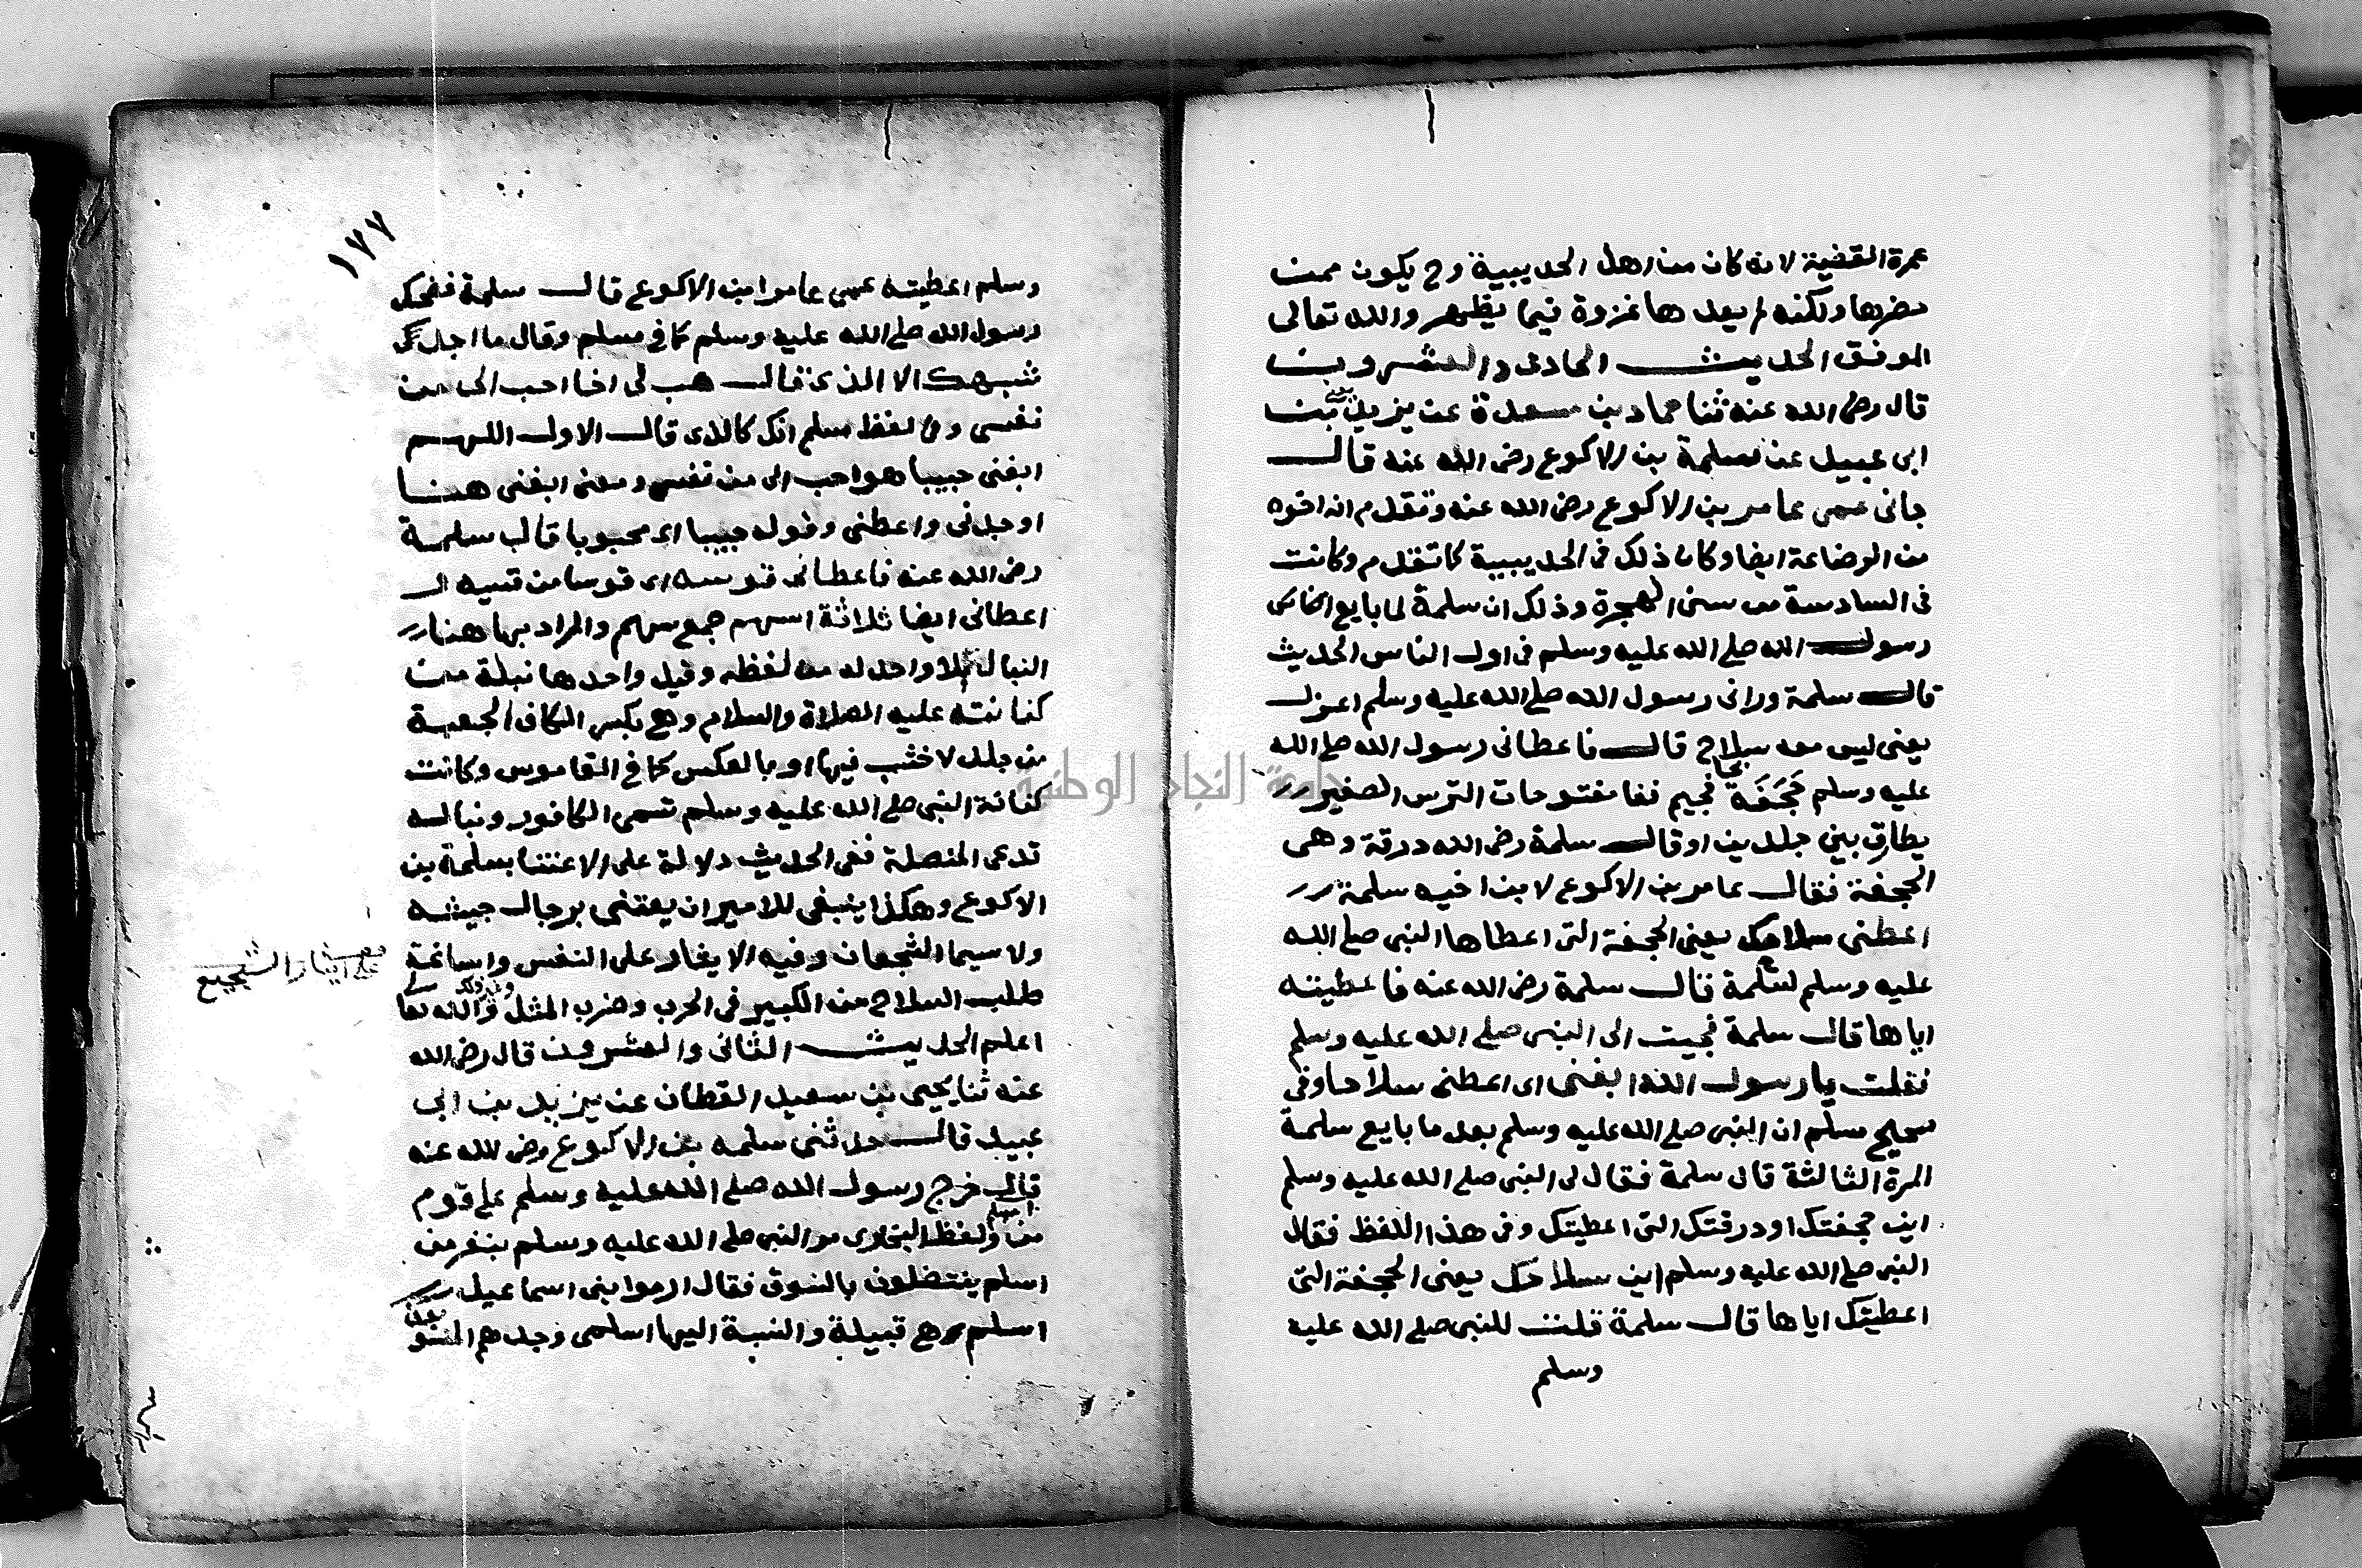 عمرة القضية لانه كان من اهل الحديبية وح يكون ممن
حضرها ولكنه لم يعدها غزوة فيما يظهر والله تعالى
الموفق الحديث الحادى والعشرون
قال رضى الله عنه ثنا حماد بن مسعدة عن يزيد بن
ابى عبيد عن سلمة بن الاكوع رضى الله عنه قال
جانى عمى عامر بن الاكوع رضى الله عنه وتقدم انه اخوه
من الرضاعة ايضا وكان ذلك فى الحديبية كما تقدم وكانت
فى السادسة من سنى الهجرة وذلك ان سلمة لما بايع الناس
رسول الله صلى الله عليه وسلم فى اول الناس الحديث
قال سلمة ورانى رسول الله صلى الله عليه وسلم اعزل
يعنى ليس معه سلاح قال فاعطانى رسول الله صلى الله
عليه وسلم حَجَفَة بحا فجيم ففا مفتوحات الترس الصغير
يطارق بين جلدين او قال سلمة رضى الله درقة وهى
الحجفة فقال عامر بن الاكوع لابن اخيه سلمة
اعطنى سلاحك يعنى الحجفة التى اعطاها النبى صلى الله
عليه وسلم لسلمة قال سلمة رضى الله عنه فاعطيته
اياها قال سلمة فجيت الى النبى صلى الله عليه وسلم
فقلت يا رسول الله ابغنى اى اعطنى سلاحا وفى
صحيح مسلم ان النبى صلى الله عليه وسلم بعد ما بايع سلمة
المرة الثالثة قال سلمة فقال لى النبى صلى الله عليه وسلم
اين حجفتك او درقتك التى اعطيتك وفى هذا اللفظ فقال
النبى صلى الله عليه وسلم اين سلاحك يعنى الحجفة التى
اعطيتك اياها قال سلمة قلت للنبى صلى الله عليه
وسلم
١٧٧
وسلم اعطيته عمى عامر ابن الاكوع قال سلمة فضحك
رسول الله صلى الله عليه وسلم كما فى مسلم وقال ما اجد لك
شبهك الا الذى قال هب لى اخا احب الى من
نفسى وفى لفظ مسلم انك كالذى قال الاول اللهم
ابغنى حبيبا هو احب الى من نفسى ومعنى ابغنى هنا
اوجدنى واعطنى وقوله حبيبا اى محبوبا قال سلمة
رضى الله عنه فاعطانى قوسه اى قوسا من قسيه
اعطانى ايضا ثلاثة اسهم جمع سهم والمراد بها هنا
النبال بلا واحد له من لفظه وقيل واحدها نبلة من
كنانته عليه الصلاة والسلام وهى بكسر الكاف الجعبة
من جلد لا خشب فيها او بالعكس كما فى القاموس وكانت
كنانة النبى صلى الله عليه وسلم تسمى الكافور ونباله
تدعى المنصلة ففى الحديث دلالة على الاعتنا بسلمة بن
الاكوع وهكذا ينبغى للامير ان يعتنى برجال جيشه
ولا سيما الشجعان وفيه الايثار على النفس واساغة
على ايثار الشجيع
طلب السلاح من الكبير فى الحرب وضرب المثل وغير ذلك والله تعالى
اعلم الحديث الثانى والعشرون قال رضى الله
عنه ثنا يحيى بن سعيد القطان عن يزيد بن ابى
عبيد قال حدثنى سلمه بن الاكوع رضى الله عنه
قال خرج رسول الله صلى الله عليه وسلم على قوم
من اسلم ولفظ البخارى مر النبى صلى الله عليه وسلم بنفر من
اسلم ينتضلون بالسوق فقال ارموا بنى اسماعيل
اسلم هى قبيلة والنسبة اليها اسلمى وجدهم
جامعة النجاح الوطنية